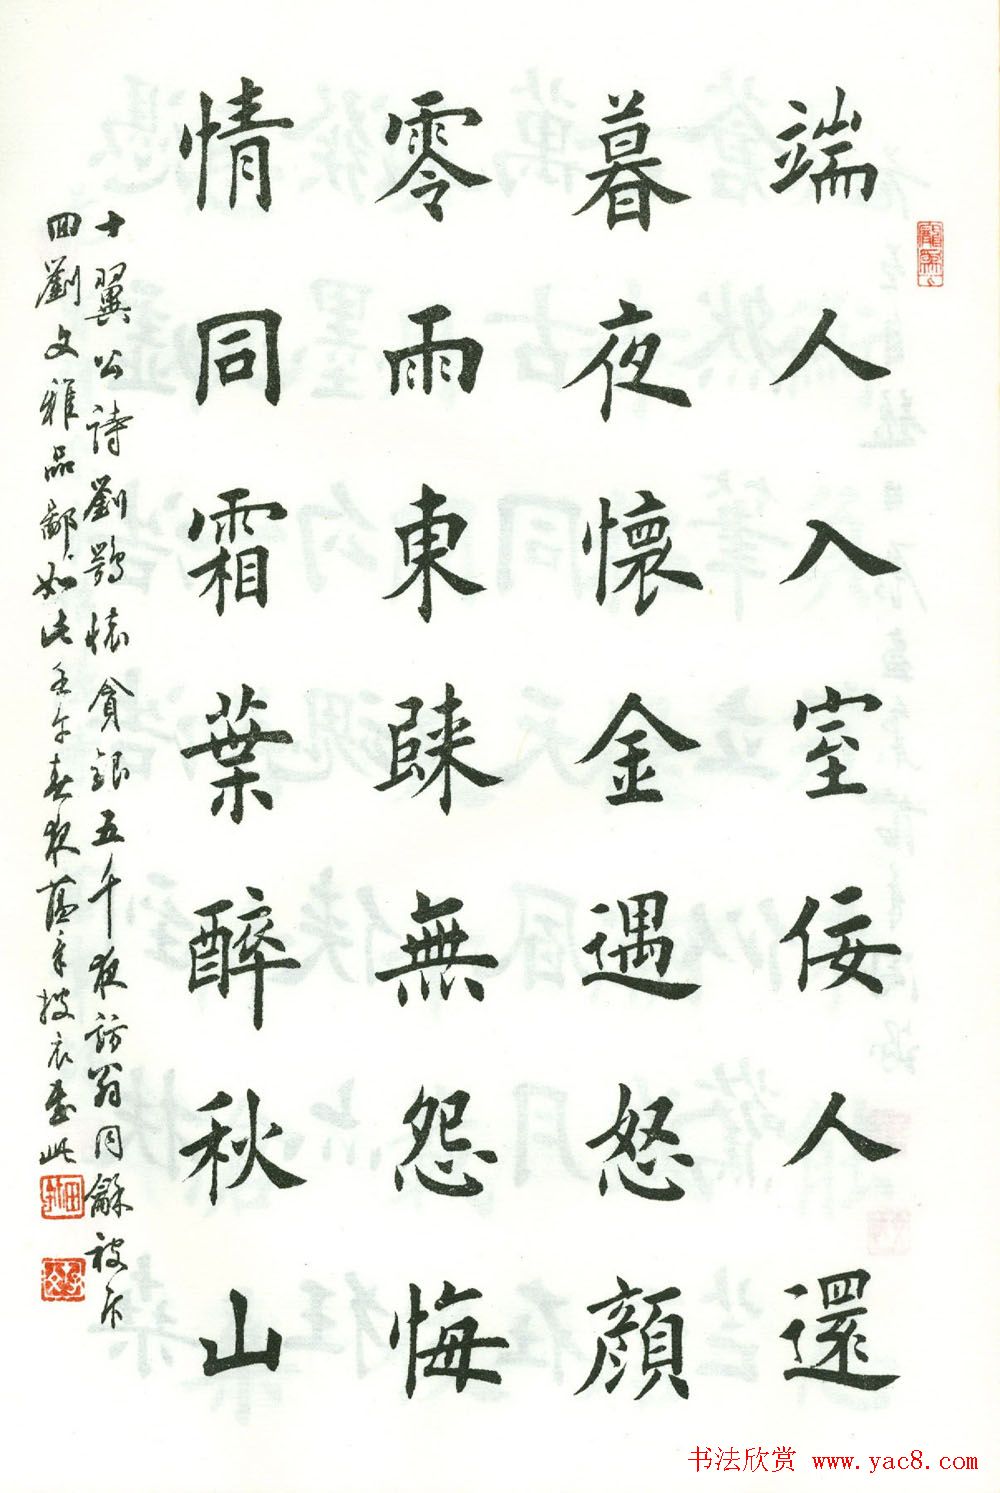 端人入室佞人還
暮夜懷金遇怒顏
零雨東陳無怨悔
情同霜葉醉秋山
十翼公詩劉鶚懷貪銀五千夜訪翁同龢被斥
回劉文雅品鄙如此壬午春夜蔭亭披衣書此
书法欣赏 www.yac8.com